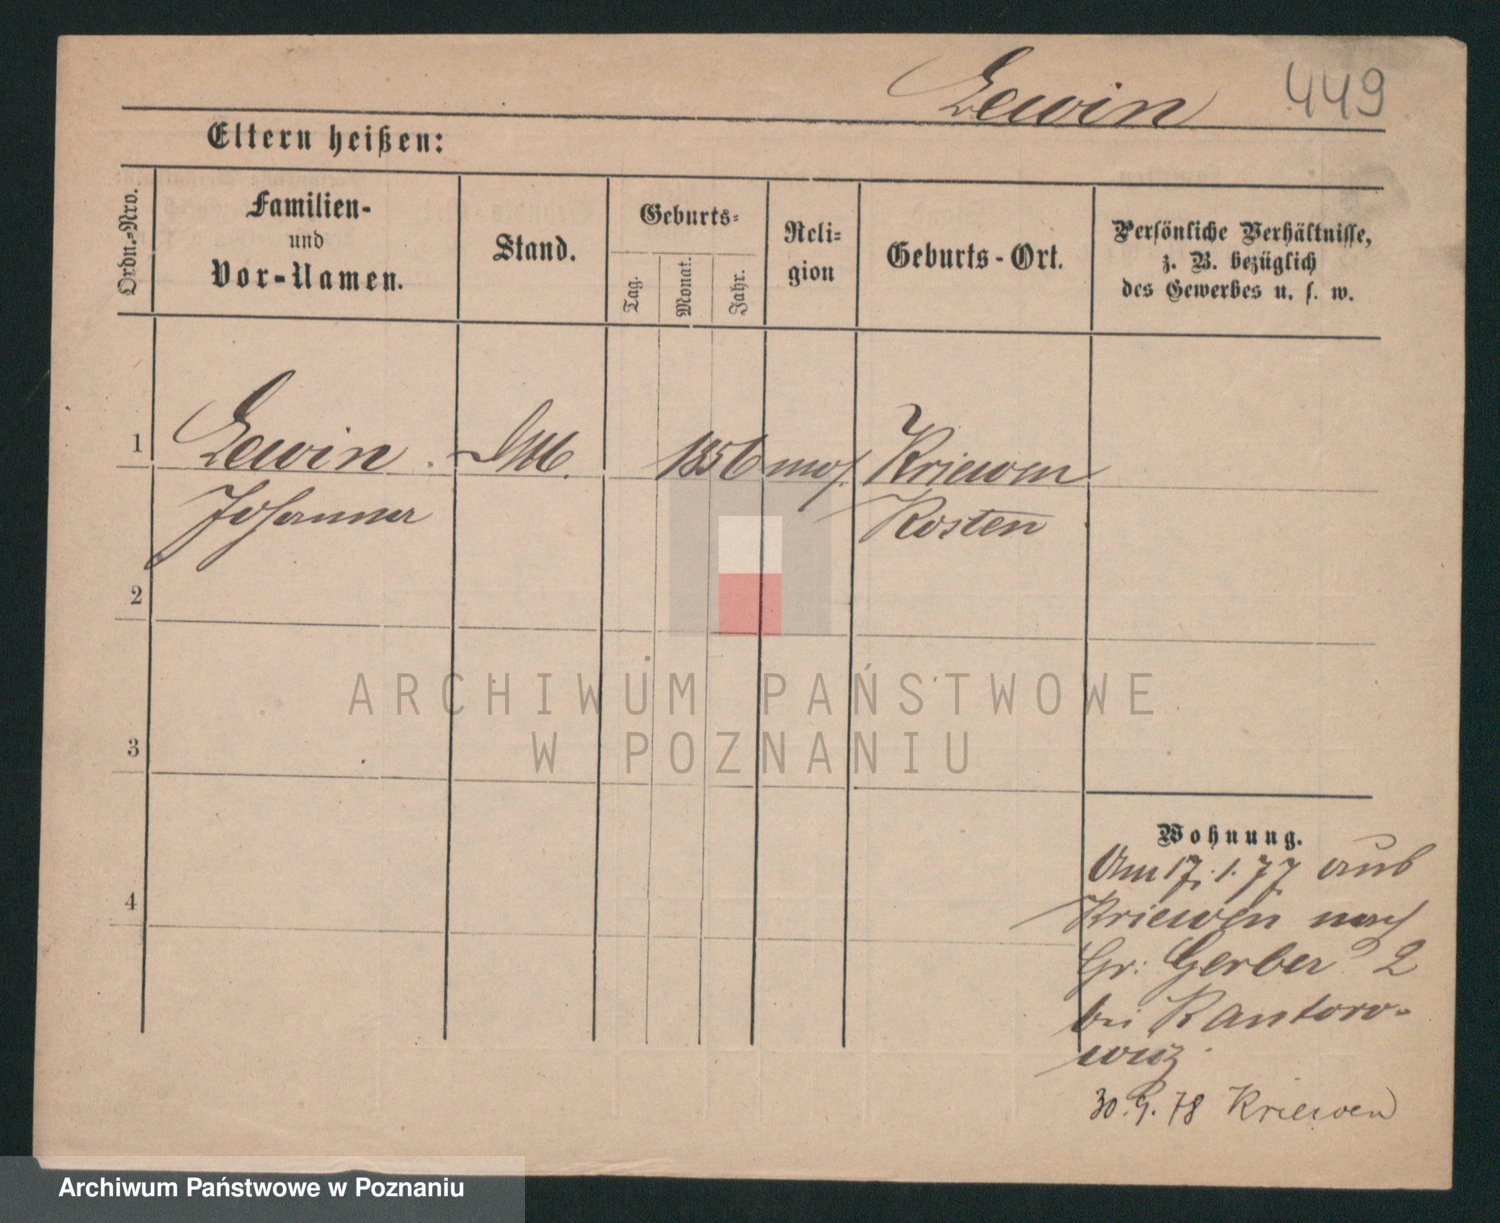 Lewin 449
Eltern heißen:
Ordn.-Nro.
Familien-
und
Vor-Namen.
Stand.
Geburts-
Tag.
Monat.
Jahr.
Reli-
gion
Geburts-Ort.
Persönliche Verhältnisse,
z. B. bezüglich
des Gewerbes u. s. w.
1 Lewin 1856 mos. Kriewen
Johanna Kosten
2
3
4
ARCHIWUM PAŃSTWOWE
W POZNANIU
Wohnung.
Am 17.1.77 aus
Kriewen nach
Gr: Gerber 2
bei Kantoro-
wicz
30.9.78 Kriewen
Archiwum Państwowe w Poznaniu